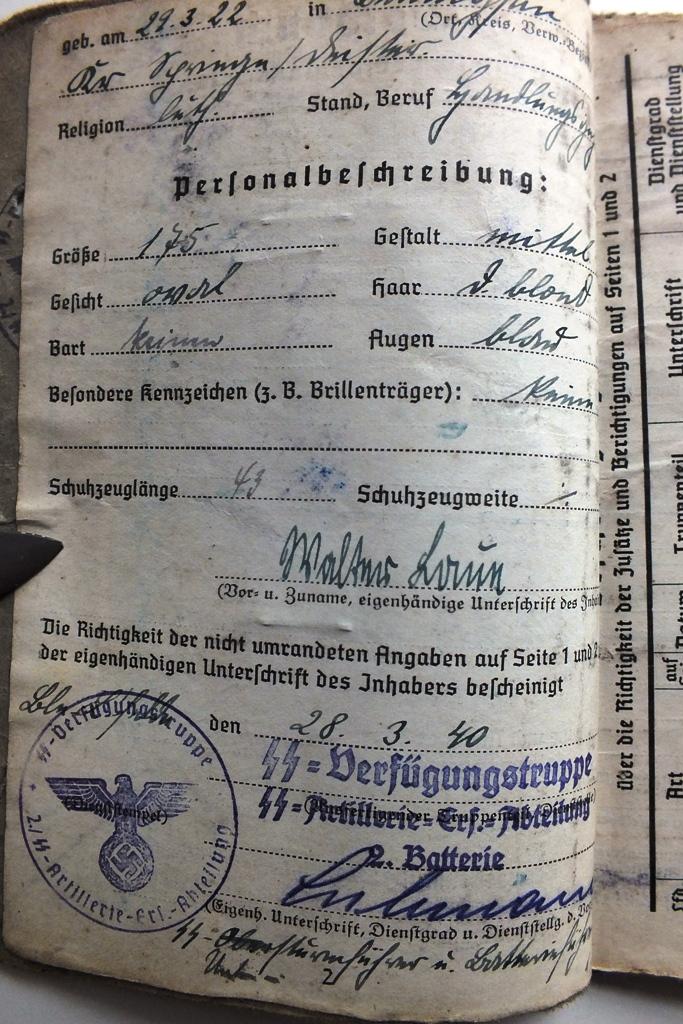 geb. am 29.3.22 in
(Ort, Kreis, Verw.-Bezirk
Kr Springe / Deister
Religion luth. Stand, Beruf Handlungs
Personalbeſchreibung:
Größe 175 Geſtalt mittel
Geſicht oval Haar d. blond
Bart keinen Augen blau
Beſondere Kennzeichen (z. B. Brillenträger): keine
Schuhzeuglänge 43 Schuhzeugweite
Walter Laue
(Vor- u. Zuname, eigenhändige Unterſchrift des Inha
Die Richtigkeit der nicht umrandeten Angaben auf Seite 1 und 2
der eigenhändigen Unterſchrift des Inhabers beſcheinigt
den 28. 3. 40
SS-Verfügungstruppe
SS-Artillerie-Erſ.-Abteilung
2. Batterie
SS-Verfügungstruppe
2./SS-Artillerie-Erſ.-Abteilung
(Dienſtſtempel)
(Eigenh. Unterſchrift, Dienſtgrad u. Dienſtſtellg. d. Vor
SS-Obersturmführer u. Batterieführer
über die Richtigkeit der Zuſätze und Berichtigungen auf Seiten 1 und 2
Dienſtgrad
und Dienſtſtellung
Unterſchrift
Truppenteil
Datum
auf
Art
Lfd